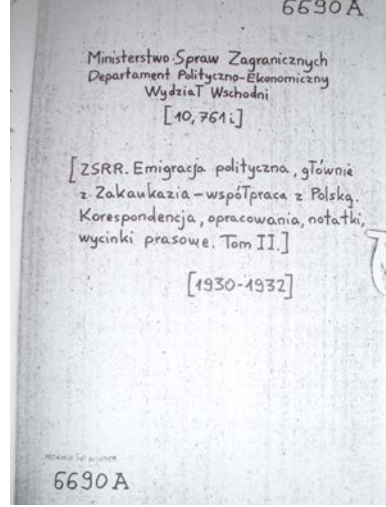 6690 A
Ministerstwo Spraw Zagranicznych
Departament Polityczno-Ekonomiczny
Wydział Wschodni
[10,761 i]
[ZSRR. Emigracja polityczna, głównie
z Zakaukazia - współpraca z Polską.
Korespondencja, opracowania, notatki,
wycinki prasowe. Tom II.]
[1930-1932]
6690 A